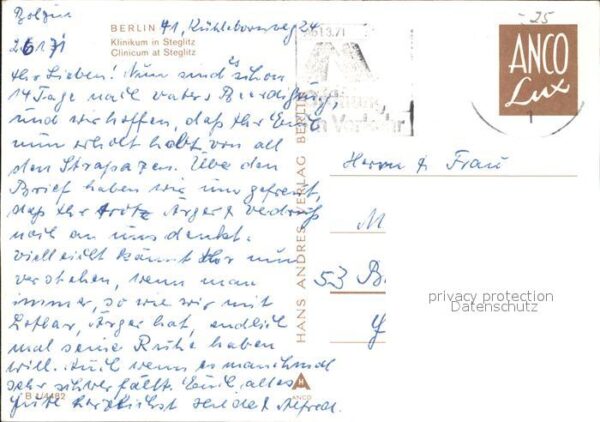 BERLIN 41, Kühlebornweg 24
Klinikum in Steglitz
Clinicum at Steglitz
Ihr Lieben! Nun sind es schon
14 Tage nach Vaters Beerdigung
und wir hoffen, daß Ihr Euch
nun erholt habt von all
den Strapazen. Über den
Brief haben wir uns gefreut,
daß Ihr trotz Ärger & Verdruß
noch an uns denkt.
Vielleicht könnt Ihr nun
verstehen, wenn man
immer, so wie wir mit
Lothar, Ärger hat, endlich
mal seine Ruhe haben
will. Auch wenn es manchmal
sehr schwer fällt. Euch alles
Gute herzlichst Alfred.
B 1/4482
HANS ANDRES VERLAG BERLIN
ANCO
3.71
Verkehr
25
ANCO
Lux
1
Herrn & Frau
M
53 B
privacy protection
Datenschutz